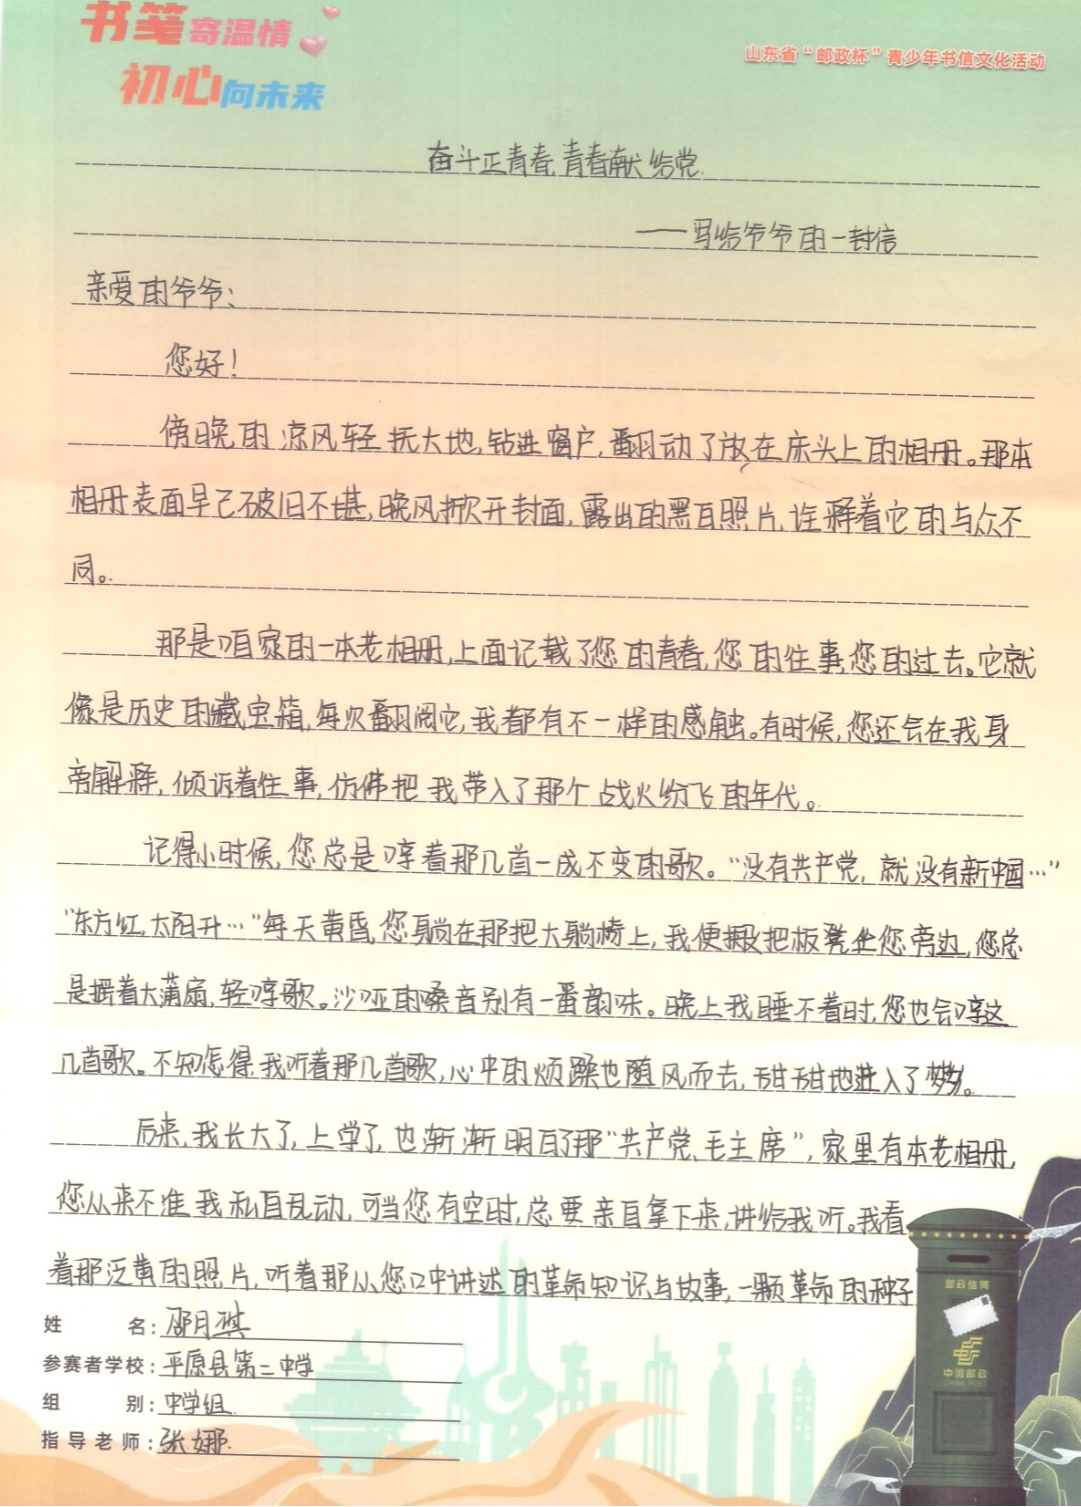 书笺寄温情
初心向未来
山东省“邮政杯”青少年书信文化活动
奋斗正青春,青春献给党.
——写给爷爷的一封信
亲爱的爷爷:
您好!
傍晚的凉风轻抚大地,钻进窗户,翻动了放在床头上的相册。那本
相册表面早已破旧不堪,晚风掀开封面,露出的黑白照片,诠释着它的与众不
同。
那是咱家的一本老相册,上面记载了您的青春,您的往事,您的过去。它就
像是历史的藏宝箱,每次翻阅它,我都有不一样的感触。有时候,您还会在我身
旁解释,倾诉着往事,仿佛把我带入了那个战火纷飞的年代。
记得小时候,您总是哼着那几首一成不变的歌。“没有共产党,就没有新中国…”
“东方红,太阳升…”每天黄昏,您躺在那把大躺椅上,我便搬把板凳坐您旁边,您总
是握着大蒲扇,轻哼歌。沙哑的嗓音别有一番韵味。晚上我睡不着时,您也会哼这
几首歌。不知怎得,我听着那几首歌,心中的烦躁也随风而去,甜甜地进入了梦乡。
后来,我长大了,上学了,也渐渐明白了那“共产党、毛主席”,家里有本老相册,
您从来不准我私自乱动,可当您有空时,总要亲自拿下来,讲给我听。我看
着那泛黄的照片,听着那从您口中讲述的革命知识与故事,一颗革命的种子
邮政信筒
中国邮政
CHINA POST
姓名:邵月琪
参赛者学校:平原县第二中学
组别:中学组
指导老师:张娜.